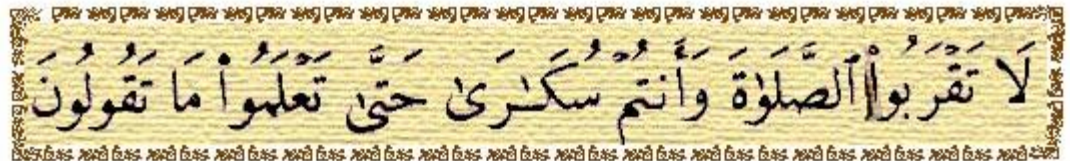 لَا تَقْرَبُوا۟ ٱلصَّلَوٰةَ وَأَنتُمْ سُكَـٰرَىٰ حَتَّىٰ تَعْلَمُوا۟ مَا تَقُولُونَ